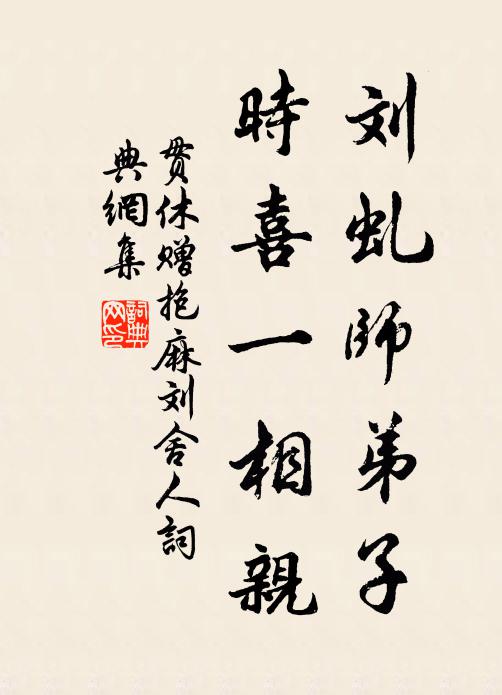 刘虬師弟子
時喜一相親
贯休赠抱麻刘舍人詞
典網集
詞典
网印